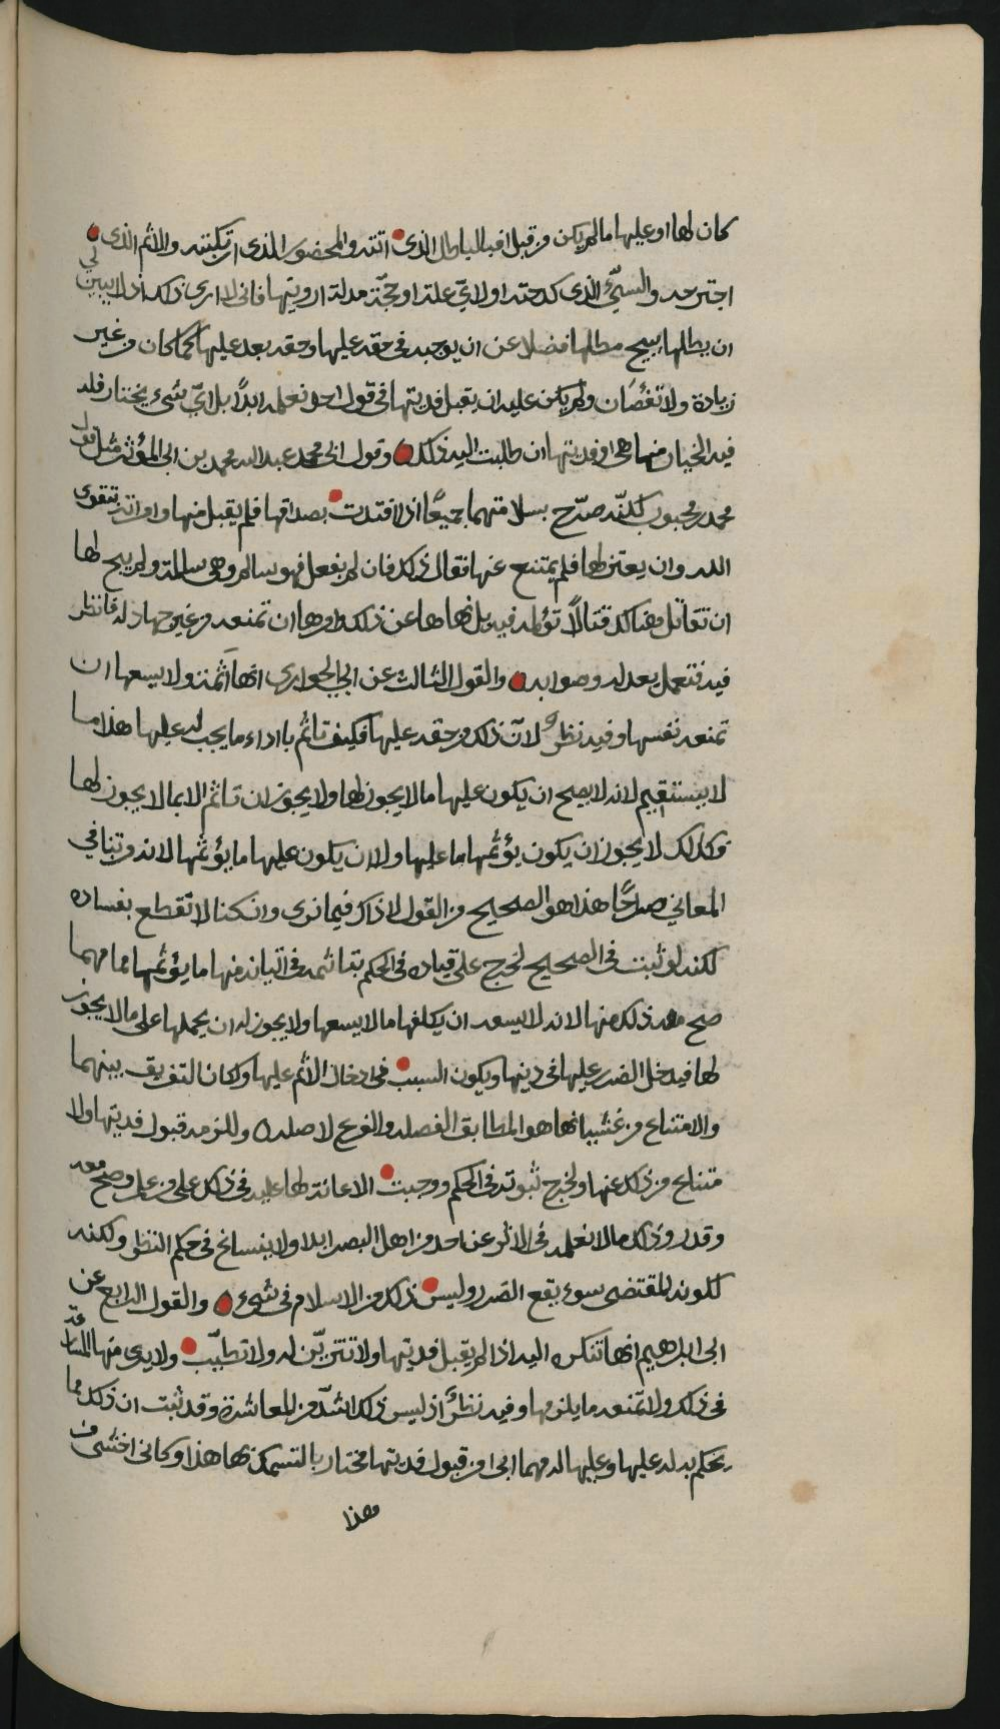 كان لها او عليها ما لم يكن من قبل افبالباطل الذي اتته والمحضور الذي ارتكبته والاثم الذي
اجترحه والسيّئ الذي كدحته او لايّ علة او حجّة مدلة اوريتها فاني لا ارى ذلك اذ لا يبين لي
ان بطلها يبيح مطلها فضلا عن ان يوجبه في حقه عليها وحقه بعد عليها كما كان من غير
زيادة ولا نقصان ولم يكن عليه ان يقبل فديتها في قول احد نعلمه ابدًا بل ايّ شيء يختار فله
فيه الخيار منها هي او فديتها ان طلبت اليه ذلك وقول ابي محمد عبد الله محمد بن ابي المؤثر مثل قول
محمد بن محبوب لكنّه صرّح بسلامتهما جميعًا اذا افتدت بصداقها فلم يقبل منها وامراته بتقوى
الله وان يعتزلها فلم يمتنع عنها فقال ذلك فان لم يفعل فهو سالم وهي سالمة ولم يبح لها
ان تقاتل هنالك قتالًا تؤلمه فيه بل نهاها عن ذلك وامرها ان تمنعه من غير جهاد له فانظر
فيه فتعمل بعدله وصوابه والقول الثالث عن ابي الحواري انها آثمة ولا يسعها ان
تمنعه نفسها وفيه نظر لانّ ذلك من حقه عليها فكيف تاثم باداء ما يجب له عليها هذا ما
لا يستقيم لانه لا يصح ان يكون عليها ما لا يجوز لها ولا يجوز ان تاثم الا بما لا يجوز لها
وكذلك لا يجوز ان يكون يؤثمها ما عليها ولا ان يكون عليها ما يؤثمها لانه من تنافي
المعاني صراحًا هذا هو الصحيح من القول لا ذاك فيما نرى وان كنا لا نقطع بفساده
لكنه لو ثبت في الصحيح لخرج على قياده في الحكم بتاثمه في اتيانه منها ما يؤثمها مما مهما
صح معه ذلك منها لانه لا يسعه ان يكلفها ما لا يسعها ولا يجوز له ان يحملها على ما لا يجوز
لها فيدخل الضرر عليها في دينها ويكون السبب في ادخال الاثم عليها ولكان التفريق بينهما
والامتناع من غشيانها هو المطابق لفصله والفرع لاصله وللزمه قبول فديتها ولا
متناع من ذلك عنها ولخرج ثبوته في الحكم ووجبت الاعانة لها عليه في ذلك على من علم وصح معه
وقدروي ذلك ما لا نعلمه في الاثر عن احد من اهل البصر ابدا ولا ينساغ في حكم النظر ولكنه
لكونه المقتضى سوء يقع الضرر وليس ذلك من الاسلام في شيء والقول الرابع عن
ابي ابراهيم انها تنكره اليه اذا لم يقبل فديتها ولا تتزيّن له ولا تطيّب ولا يرى منها المشاقة
في ذلك ولا تمنعه ما يلزمها وفيه نظرٌ اذ ليس ذلك اشدّ من المعاشرة وقد ثبت ان ذلك مما
يحكم به له عليها وعليها له مهما ابى من قبول فديتها مختار بالتمسك بها هذا وكاني اخشى من
هذا